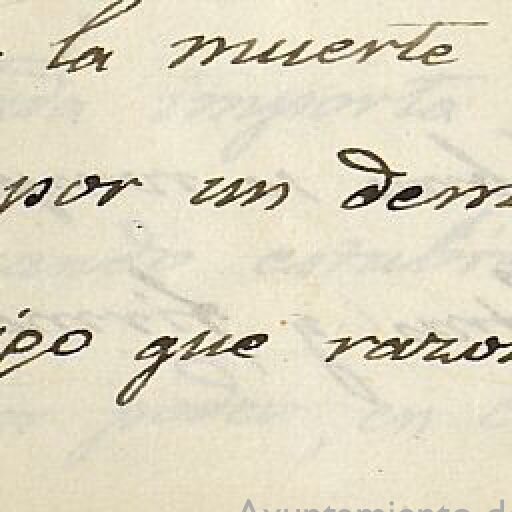 la muerte
por un dem
igo que razon
Ayuntamiento de